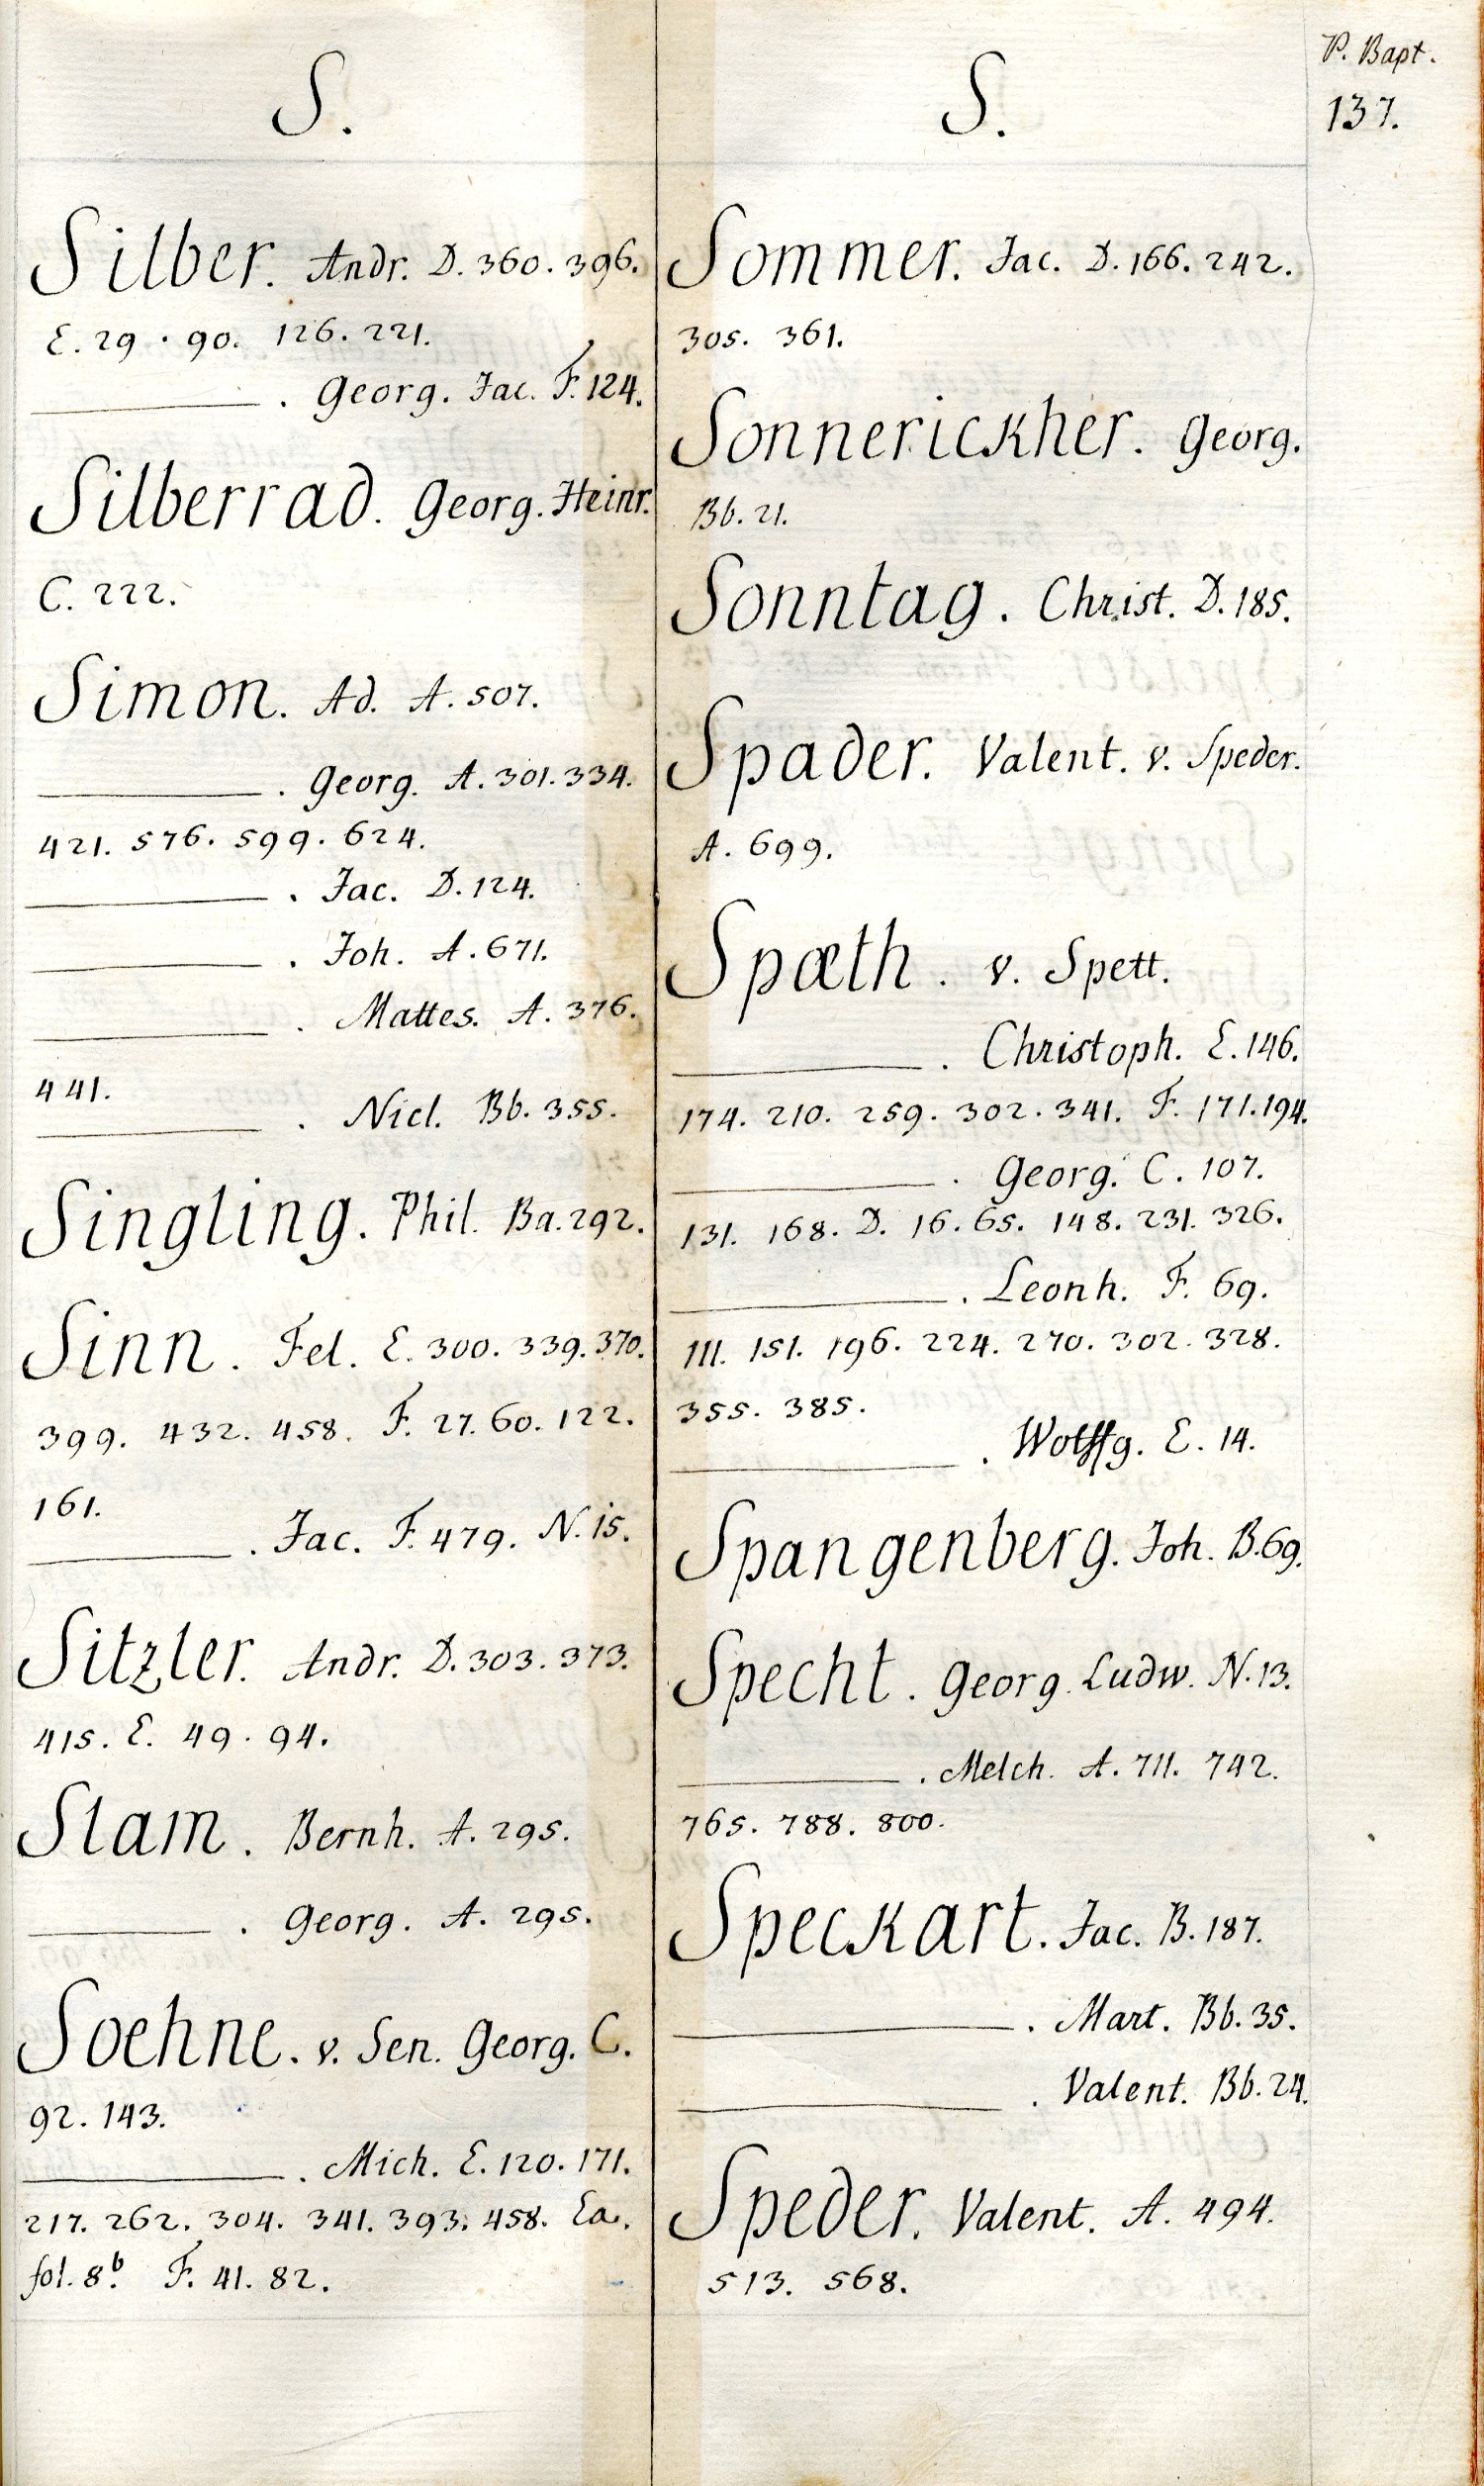 S.
Silber. Andr. D. 360. 396.
E. 29. 90. 126. 221.
. Georg. Jac. F. 124.
Silberrad. Georg. Heinr.
C. 222.
Simon. Ad. A. 507.
. Georg. A. 301. 334.
421. 576. 599. 624.
. Jac. D. 124.
. Joh. A. 671.
. Mattes. A. 376.
441.
. Nicl. Bb. 355.
Singling. Phil. Ba. 292.
Sinn. Fel. E. 300. 339. 370.
399. 432. 458. F. 27. 60. 122.
161.
. Jac. F. 479. N. 15.
Sitzler. Andr. D. 303. 373.
415. E. 49. 94.
Slam. Bernh. A. 295.
. Georg. A. 295.
Soehne. v. Sen. Georg. C.
92. 143.
. Mich. E. 120. 171.
217. 262. 304. 341. 393. 458. Ea.
fol. 8b. F. 41. 82.
S.
Sommer. Jac. D. 166. 242.
305. 361.
Sonnerickher. Georg.
Bb. 21.
Sonntag. Christ. D. 185.
Spader. Valent. v. Speder.
A. 699.
Spæth. v. Spett.
. Christoph. E. 146.
174. 210. 259. 302. 341. F. 171. 194.
. Georg. C. 107.
131. 168. D. 16. 65. 148. 231. 326.
. Leonh. F. 69.
111. 151. 196. 224. 270. 302. 328.
355. 385.
. Wolffg. E. 14.
Spangenberg. Joh. B. 69.
Specht. Georg. Ludw. N. 13.
. Melch. A. 711. 742.
765. 788. 800.
Speckart. Jac. B. 187.
. Mart. Bb. 35.
. Valent. Bb. 24.
Speder. Valent. A. 494.
513. 568.
P. Bapt.
137.